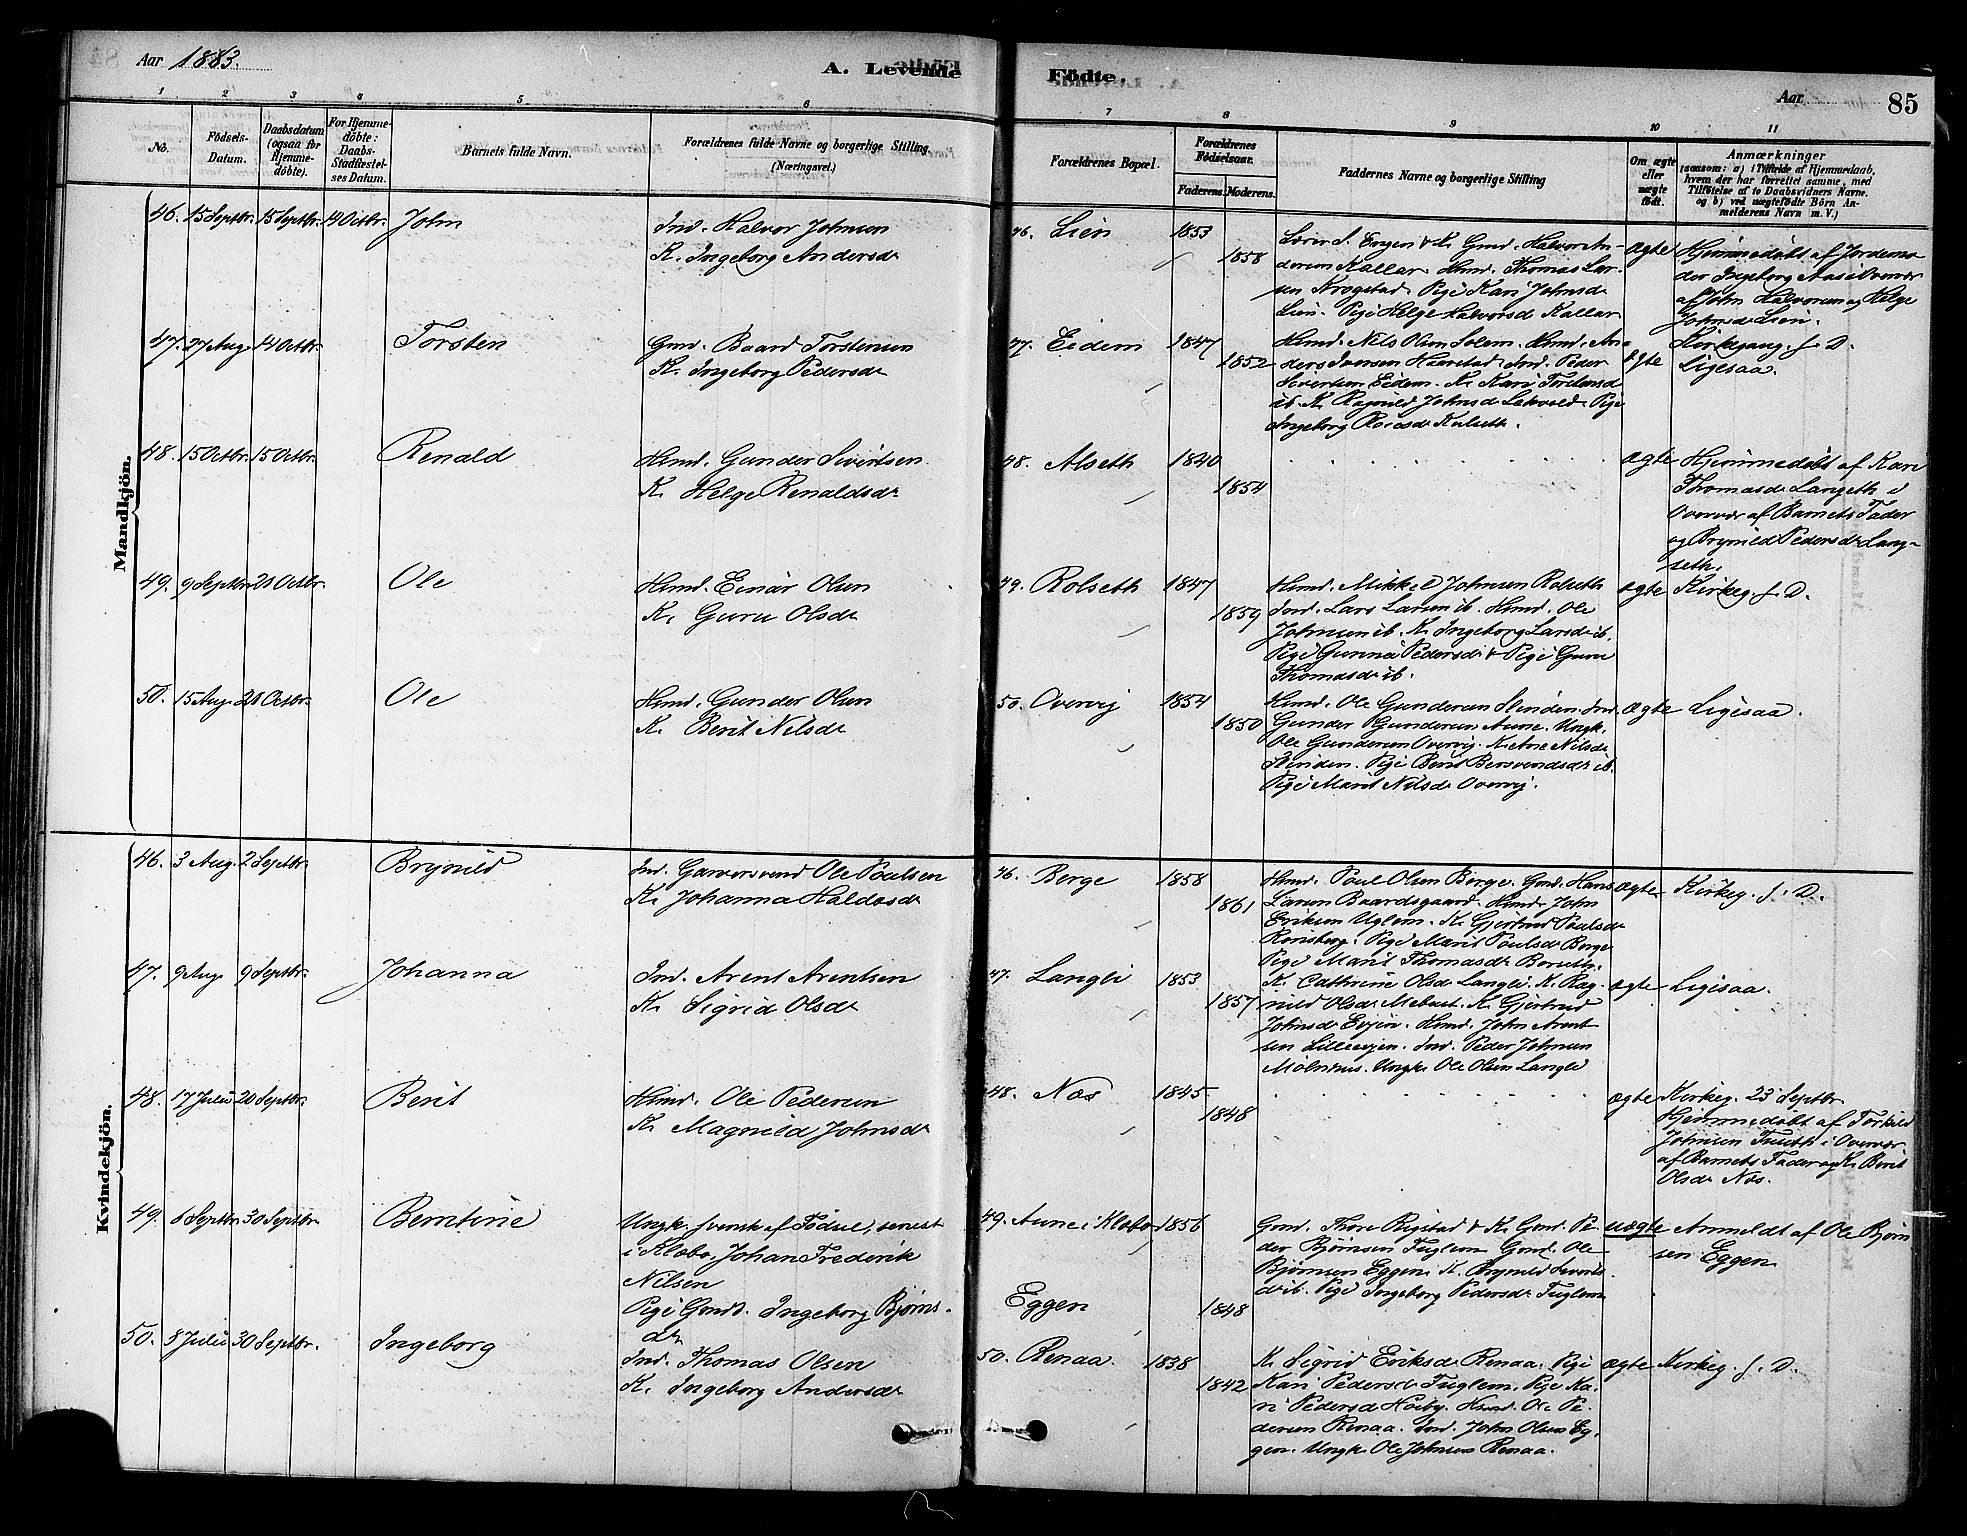 Aar 1883.
A. Levende
Födte.
Aar
85
1 2 3 4 5 6 7 8 9 10 11
No.
Födsels-Datum.
Daabsdatum (ogsaa for Hjemmedöbte).
For Hjemmedöbte: Daabs-Stadfæstelses Datum.
Barnets fulde Navn.
Forældrenes fulde Navne og borgerlige Stilling
(Næringsvei.)
Forældrenes Bopæl.
Forældrenes Födselsaar.
Faderens. Moderens.
Faddernes Navne og borgerlige Stilling
Om ægte eller uægte födt.
Anmærkninger
(saasom: a) i Tilfælde af Hjemmedaab,
hvem der har forrettet samme, med
Tilföielse af to Daabsvidners Navne.
og b) ved uægtefödte Börn An-
melderens Navn m. V.)
Mandkjön.
46. 15 Septbr. 15 Septbr. 14 Octbr. John
Ind. Halvor Johnsen
K. Ingeborg Andersdr
46. Lien 1853
1858
Lærer S. Engen & K. Gmd. Halvor An-
dersen Kallar. Hmd. Thomas Lar-
sen Krogstad. Pige Kari Johnsdr
Lien. Pige Helge Halvorsdr Kallar
ægte
Hjemmedöbt af Jordemo-
der Ingeborg Aas i Overvær
af John Halvorsen og Helge
Johnsdr Lien.
47. 27 Aug. 14 Octbr. Torsten
Gmd. Baard Torstensen
K. Ingeborg Pedersdr
47. Eidem 1847
1852
Hmd. Nils Olsen Solem. Hmd. An-
ders Iversen Haarstad. Ind. Peder
Sivertsen Eidem. K. Kari Torstensdr
ib. K. Ragnild Johnsdr Lekvold. Pige
Ingeborg Roaldsdr Kulseth.
ægte
Kirkegang. f. D.
Ligesaa.
48. 15 Octbr. 15 Octbr. Renald
Hmd. Gunder Sivertsen
K. Helge Renaldsdr
48. Alseth 1840
1854
ægte
Hjemmedöbt af Kari
Thomasdr Langseth i
Overvær af Barnets Fader
og Brynild Pedersdr Lang-
seth.
49. 9 Septbr. 21 Octbr. Ole
Hmd. Einar Olsen
K. Guru Olsdr
49. Rolseth 1847
1859
Hmd. Mikkel Johnsen Rolseth
Ind. Lars Larsen ib. Hmd. Ole
Johnsen ib. K. Ingeborg Larsdr ib.
Pige Gunnei Pedersdr & Pige Guru
Thomasdr ib.
ægte
Kirkeg. f. D.
50. 15 Aug. 21 Octbr. Ole
Hmd. Gunder Olsen
K. Berit Nilsdr
50. Overvig 1854
1850
Hmd. Ole Gundersen Slinden. Ind.
Gunder Gundersen Aune. Ungk.
Ole Gundersen Overvig. K. Ane Nilsdr
Slinden. Pige Berit Bersvendsdr ib.
Pige Marit Nilsdr Overvig.
ægte
Ligesaa.
Kvindekjön.
46. 3 Aug. 2 Septbr. Brynild
Ind. Garversvend Ole Paulsen
K. Johanna Haldosdr
46. Berge 1858
1861
Hmd. Paul Olsen Berge. Gmd. Hans
Larsen Baardsgaard. Hmd. John
Eriksen Uglem. K. Gjertrud Paulsdr
Rensberg. Pige Marit Paulsdr Berge
Pige Marit Thomasdr
ægte
Kirkeg. f. D.
47. 9 Aug. 9 Septbr. Johanna
Ind. Arent Arentsen
K. Sigrid Olsdr
47. Langli 1853
1857
K. Cathrine Olsdr Langli. K. Rag-
nild Olsdr Mebust. K. Gjertrud
Johnsdr Evjen. Hmd. John Arent-
sen Lilleevjen. Ind. Peder Johnsen
Mölnhus. Ungk. Ole Olsen Langli
ægte
Ligesaa.
48. 17 Julii 20 Septbr. Berit
Hmd. Ole Pedersen
K. Magnild Johnsdr
48. Næs 1845
1848
ægte
Kirkeg. 23 Septbr.
Hjemmedöbt af Torkild
Johnsen i Overvær
af Barnets Fader og K. Berit
Olsdr Næs.
49. 6 Septbr. 30 Septbr. Berntine
Ungk. svensk af Födsel, senest
i Klæbo, Johan Frederik
Nilsen
Pige Gmdt. Ingeborg Björns-
dr
49. Aune i Klæbo 1856
Eggen 1848
Gmd. Thore Rigstad & K. Gmd. Pe-
der Björnsen Fuglem. Gmd. Ole
Björnsen Eggen. K. Brynild Sivertsdr
ib. Pige Ingeborg Pedersdr Fuglem
uægte
Anmeldt af Ole Björn
sen Eggen
50. 8 Julii 30 Septbr. Ingeborg
Ind. Thomas Olsen
K. Ingeborg Andersdr
50. Renaa. 1838
1842
K. Sigrid Eriksdr Renaa. Pige
Kari Pedersdr Fuglem. Pige Ka-
ri Pedersdr Höiby. Hmd. Ole Pe-
dersen Renaa. Ind. John Olsen Eg-
gen. Ungk. Ole Johnsen Renaa.
ægte
Kirkeg. f. D.